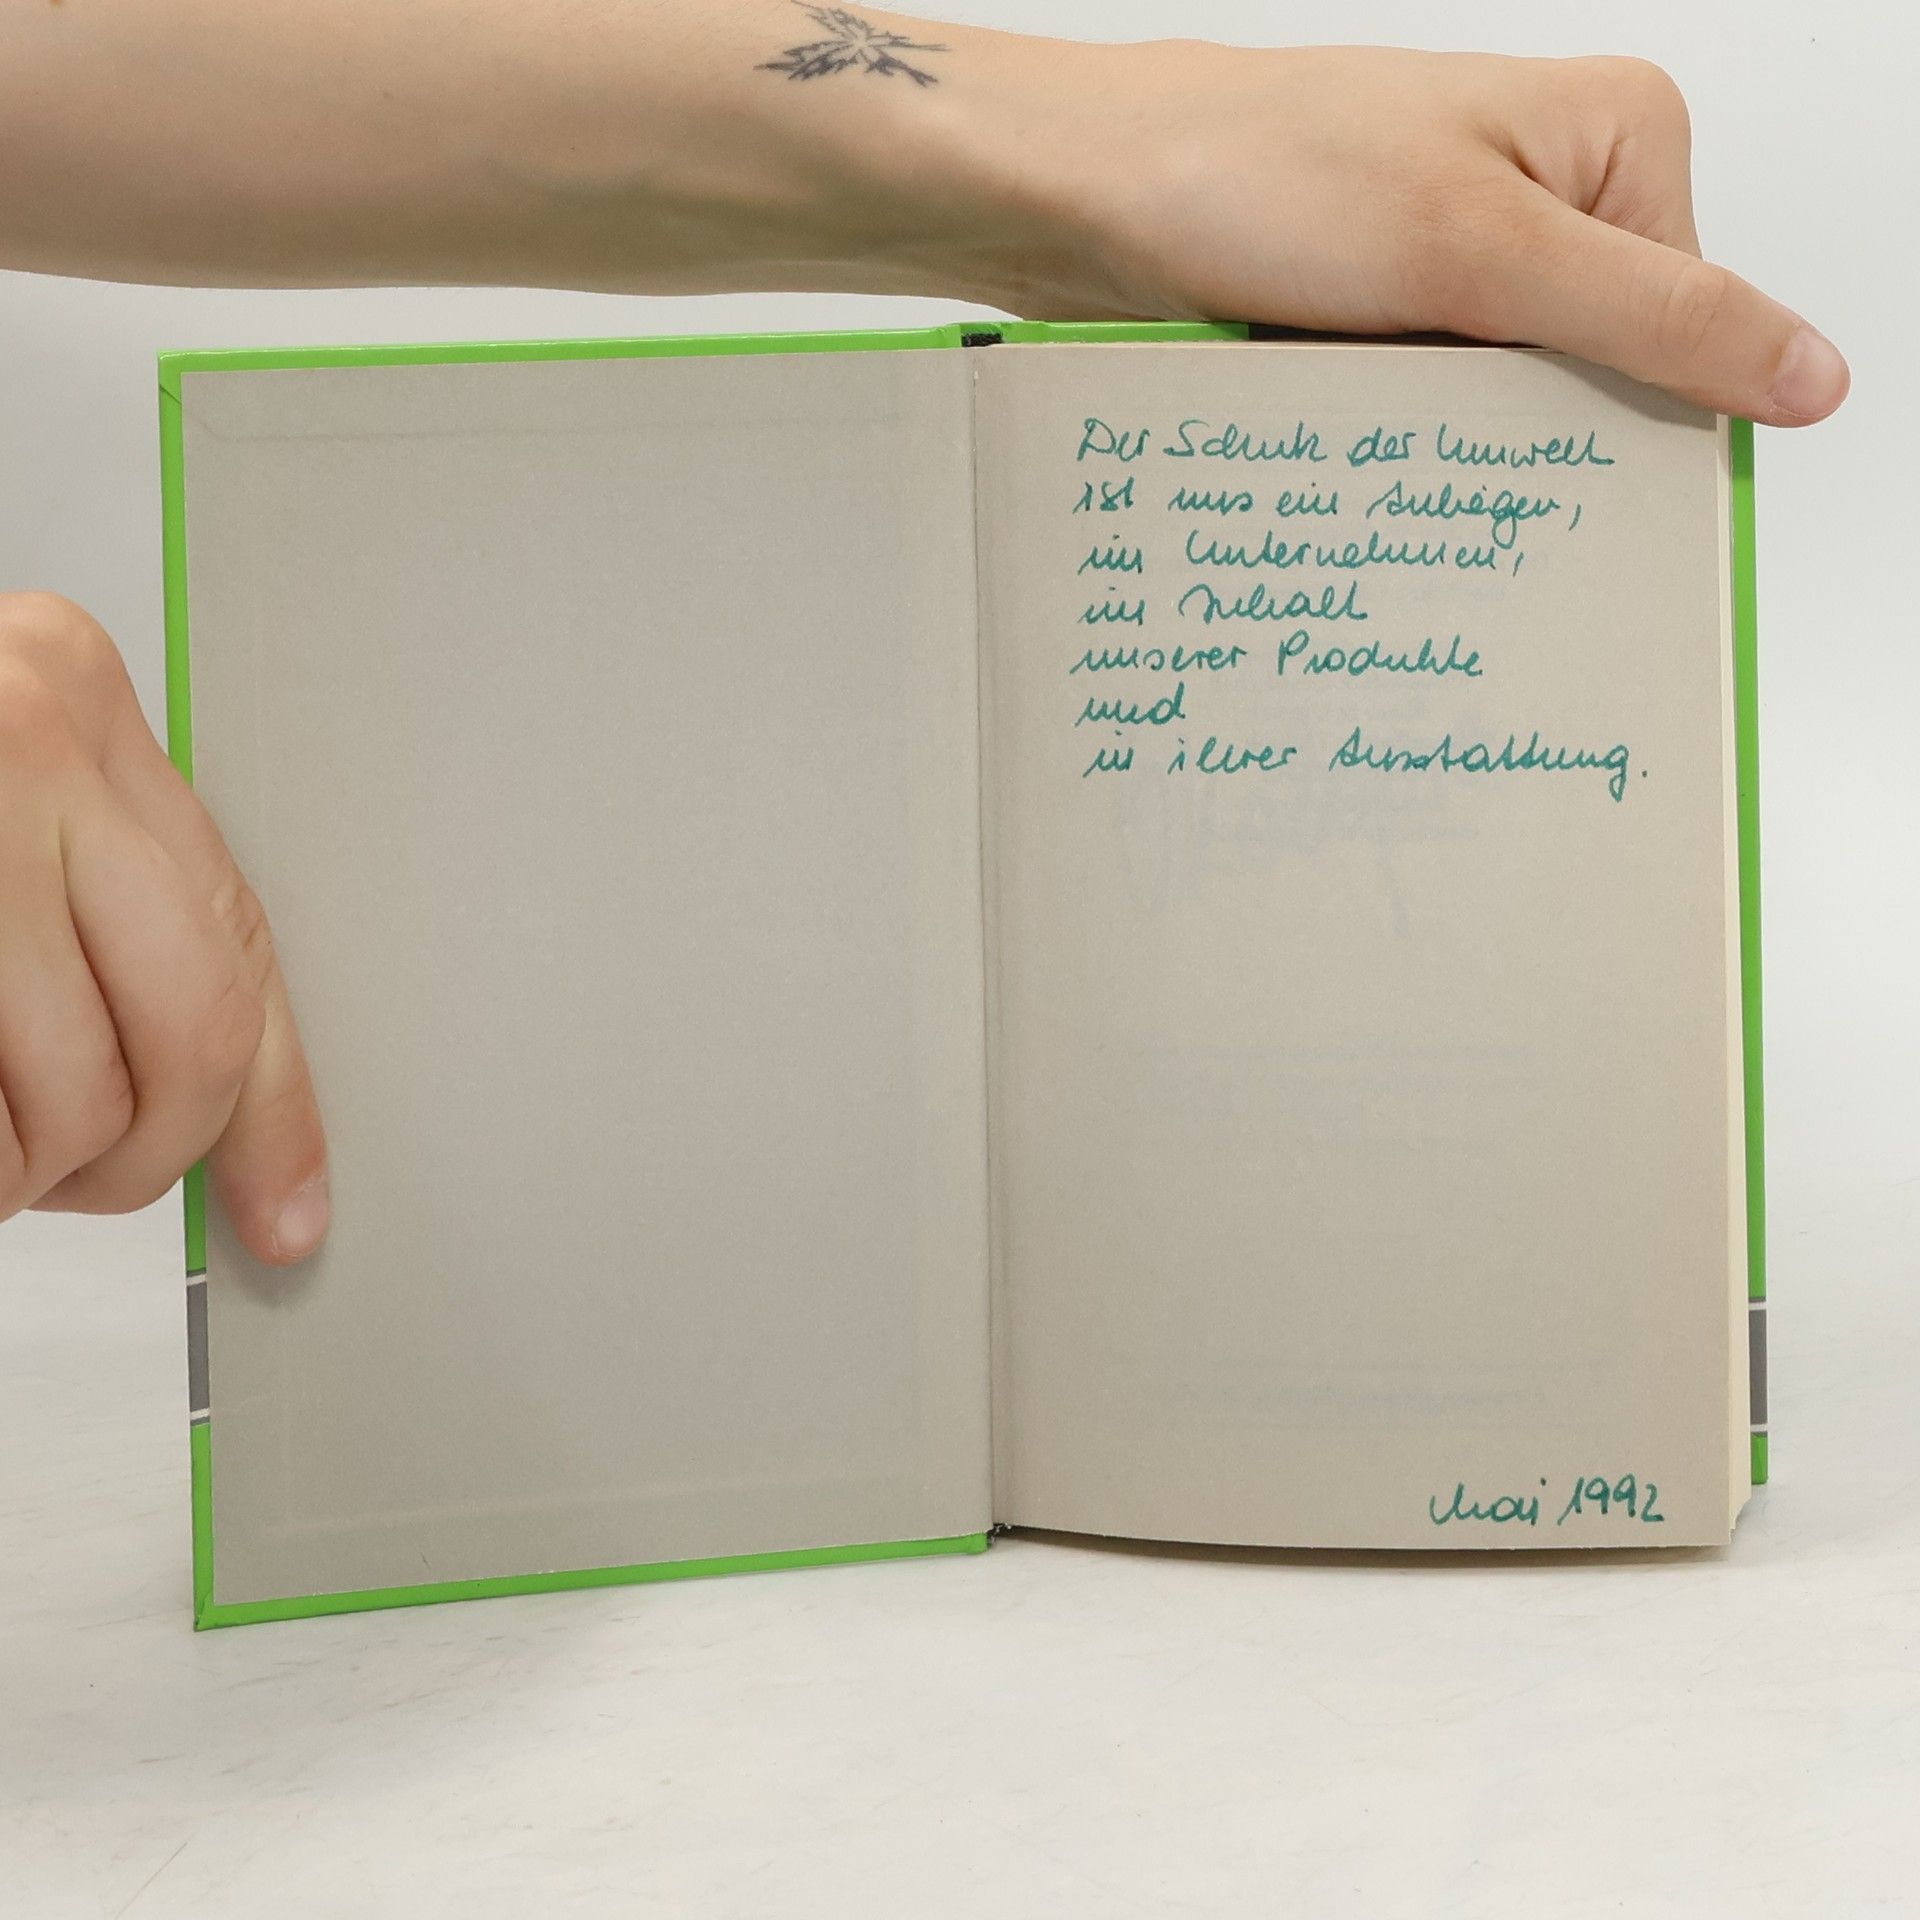 Der Schutz der Umwelt
ist uns ein Anliegen,
im Unternehmen,
im Inhalt
unserer Produkte
und
in ihrer Ausstattung.
Mai 1992